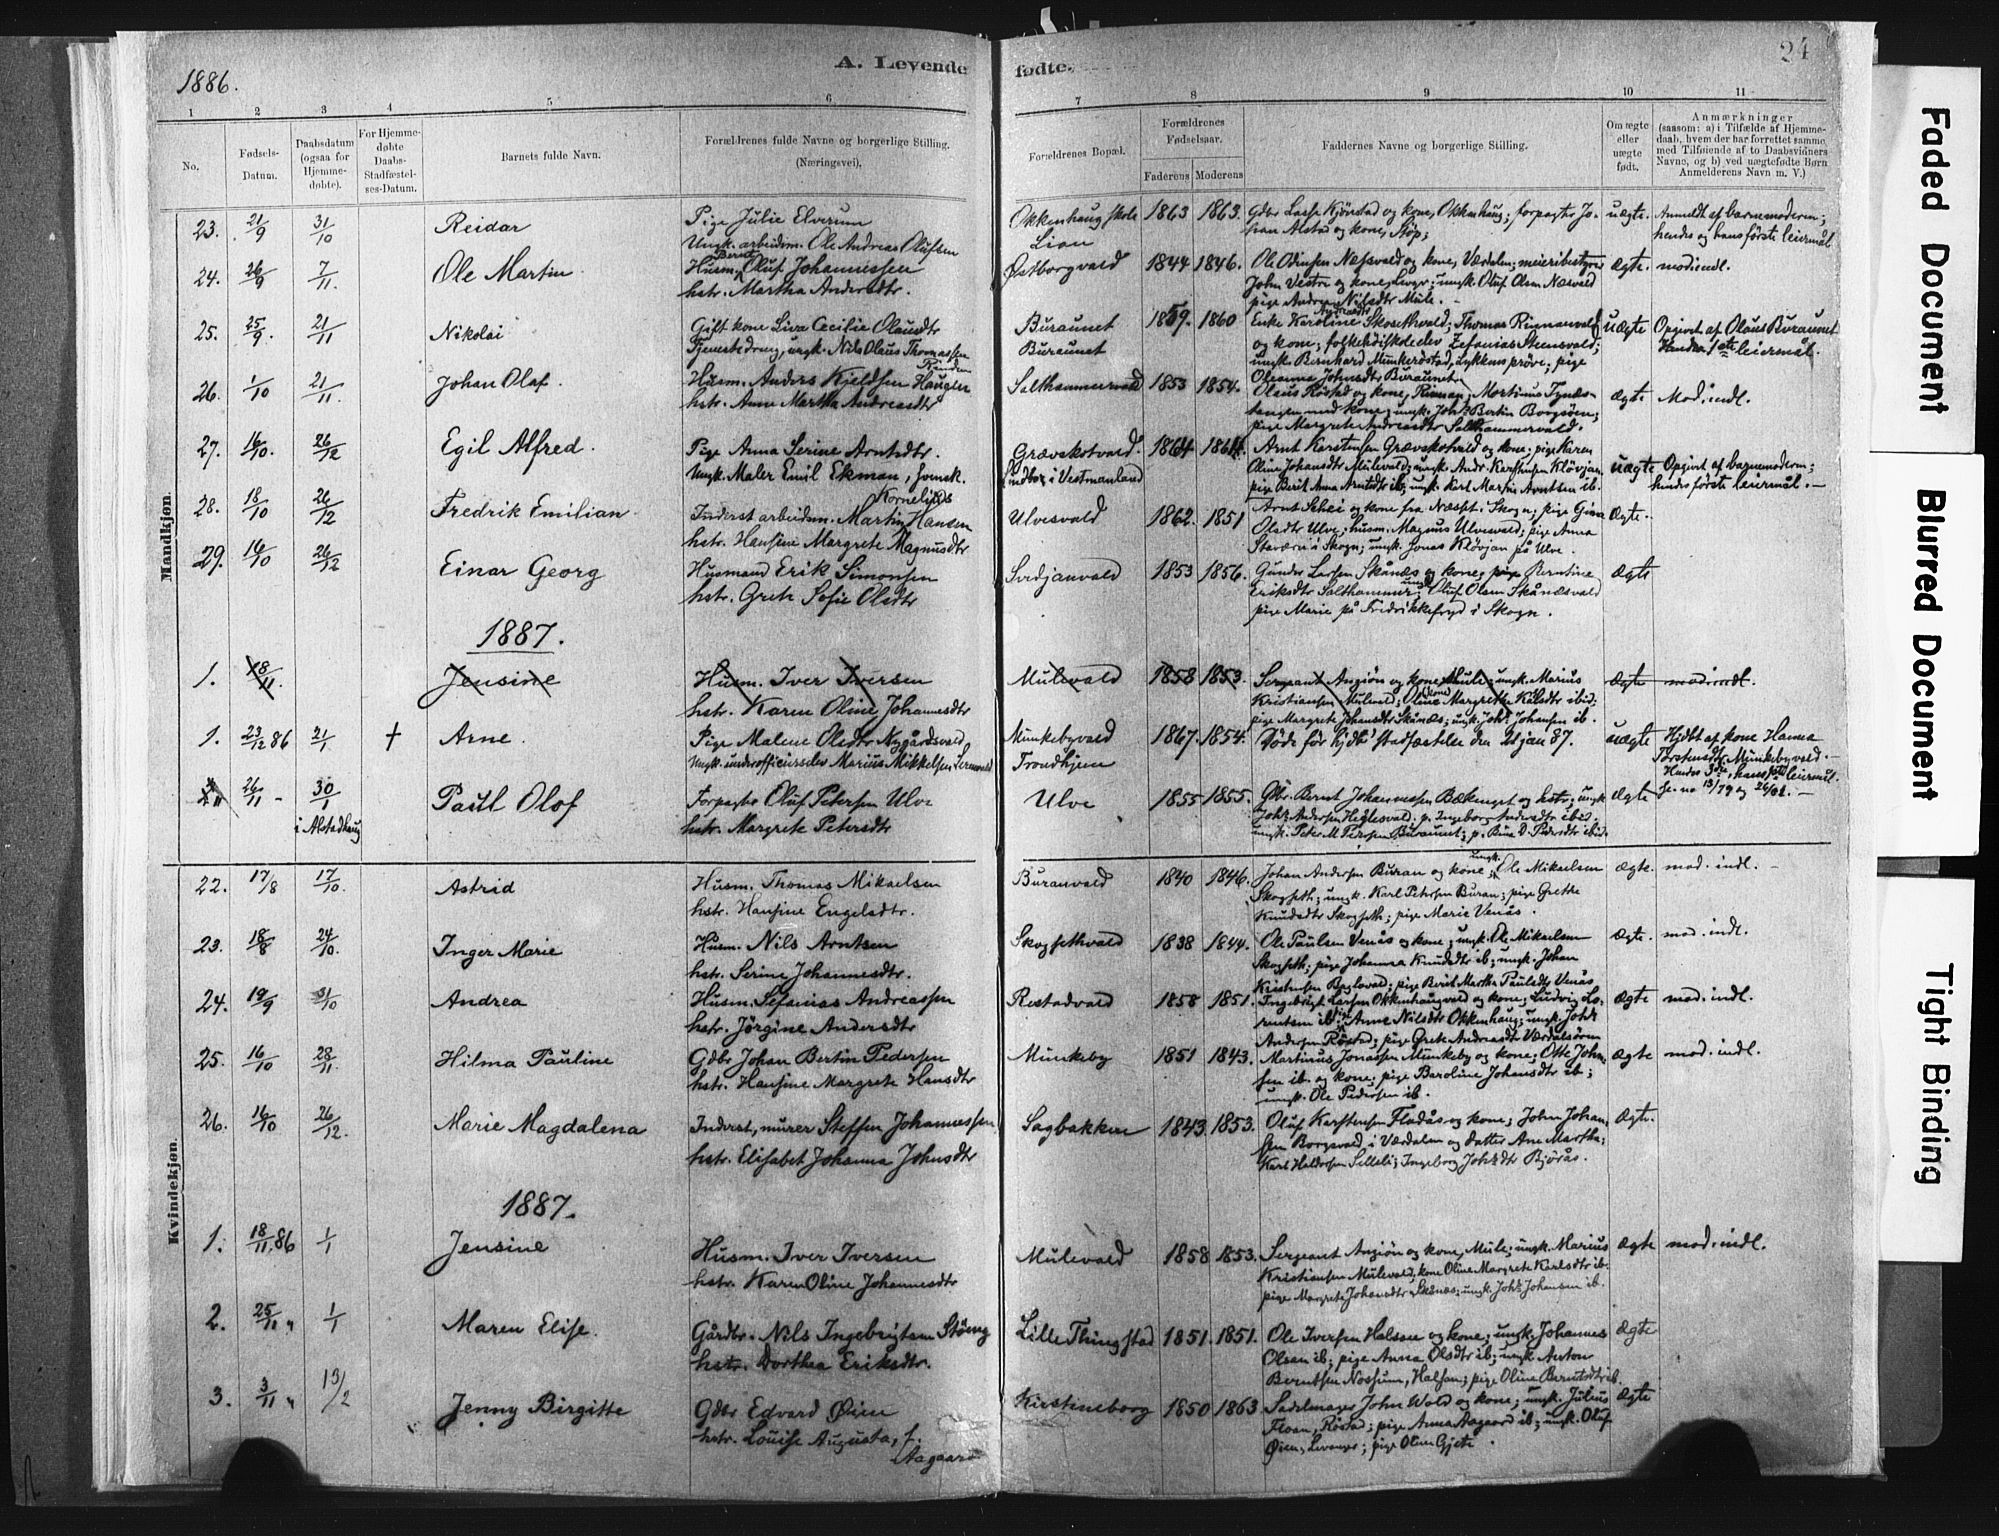 1886.
A. Levende
fødte.
24
1 2 3 4 5 6 7 8 9 10 11
No.
Fødsels-
Datum.
Daabsdatum
(ogsaa for
Hjemme-
døbte).
For Hjemme-
døbte
Daabs-
Stadfæstel-
ses-Datum.
Barnets fulde Navn.
Forældrenes fulde Navne og borgerlige Stilling.
(Næringsvei).
Forældrenes Bopæl.
Forældrenes
Fødselsaar.
Faderens Moderens
Faddernes Navne og borgerlige Stilling.
Om ægte
eller
uægte
født.
Anmærkninger
(saasom: a) i Tilfælde af Hjemme-
daab, hvem der har forrettet samme,
med Tilføiende af to Daabsvidners
Navne, og b) ved uægtefødte Børn
Anmelderens Navn m. V.)
Mandkjøn.
23. 21/9 31/10 Reidar
Pige Julie Elverum
Ungk. arbeidsm. Ole Andreas Olufsen
Okkenhaug skole
Lian
1863 1863.
Gdbr Lasse Kjönstad og kone, Okkenhaug; forpagter Jo-
han Alstad og kone, Støp;
uægte.
Anmeldt af barnemoderen;
hendes og hans første leiermål
24. 26/9 7/11. Ole Martin
Husm. Bernt Oluf Johannessen
hstr. Martha Andersdtr.
Østborgvald
1844 1846.
Ole Odinsen Næssvald og kone, Værdalen; meieribestyrer
John Vestre og kone, Levgr; ungk. Oluf Olsen Næsvald
pige Andrea Nilsdtr Mule. -
ægte. mod. indl.
25. 25/9. 21/11 Nikolai
Gift kone Liva Cecilie Olausdtr
Tjenestedreng, ungk. Nils Olaus Thomassen
Buraunet
Buraunet
1859. 1860
Enke Karoline Skosethvald; Thomas Rinnanvald
og kone; folkehöiskoleelev Zefanias Steensvald;
ungk. Bernhard Munkeröstad, Lykkens pröve; pige
Oleanna Johnsdtr Buraunet.
uægte
Opgivet af Olaus Buraunet
Hendes 1ste leiermål.
26. 1/10 21/11. Johan Olaf.
Husm. Anders Kjeldsen Haugler
hstr. Anne Martha Andreasdtr
Salthammervald
1853 1854.
Olaus Röstad og kone, Rinnan; Mortinus Tynæs-
tangen med kone; ungk. Johs Bertin Borgsöen;
pige Margrete Andreasdtr Salthammervald.
ægte Mod. indl.
27. 16/10. 26/12 Egil Alfred.
Pige Anna Serine Arntsdtr.
Ungk. Maler Emil Ekman, svensk.
Grævskotvald.
i Vestmanland
1864 1864.
Arnt Karstensen Grævskotvald og kone; pige Karen
Oline Johansdtr Mulevald; ungk. Andr. Karstensen Klövjan
pige Berit Anna Arntsdtr ib; ungk. Karl Martin Arntsen ib.
uægte
Opgivet af barnemoderen;
hendes første leiermål. -
28. 18/10 26/12 Fredrik Emilian
Inderst arbeidsm. Martin Kornelius Hansen
hstr. Hansine Margrete Magnusdtr
Ulvesvald
1862. 1851
Arnt Schei og kone fra Næsset i Skogn; pige Gina
Olsdtr Ulve; husm. Magnus Ulvesvald; pige Anna
Staværn i Skogn; ungk. Jonas Klövjan på Ulve.
ægte.
29. 16/10 26/12 Einar Georg
Husmand Erik Simonsen
hstr. Grete Sofie Olsdtr
Svedjanvald
1853 1856.
Gunder Larsen Skånæs og kone; pige Berntine
Eriksdtr Salthammer; ungk. Oluf Olsen Skånæsvald
pige Marie på Fredrikkefryd i Skogn.
ægte
1887.
1. 18/11. Jensine
Husm. Iver Iversen
hstr. Karen Oline Johannesdtr
Mulevald
1858 1853.
Sergeant Angiön og kone Mule; ungk. Marius
Kristiansen Mulevald; kone Oline Margrethe Karlsdtr ibid;
pige Margrete Johansdtr Skånæs; ungk. Johs Johansen ib.
ægte mod. indl.
1. 23/12 86 21/1 + Arne.
Pige Malene Olsdtr Nygårdsvald
Ungk. underofficerselev Marius Mikkelsen
Munkebyvald
Trondhjem
1867. 1854.
Døde før hjdb. stadfæstelse den 21 jan 87.
uægte
Hjdbt af kone Hanna
Torstensdtr Munkebyvald. -
Hendes 3die, hans 1ste leiermål.
26/11 - 30/1 i Alstadhaug
Paul Olof
Forpagter Oluf Petersen Ulve
hstr. Margrete Petersdtr
Ulve
1855 1855.
Gdbr. Bernt Johannessen Bækenget og hstr; ungk
Johs Andersen Heglesvald. p. Ingeborg Andersdtr ibid.
ungk. Peter M. Pedersen Buraunet; p. Bina D. Pedersdtr ibid.
ægte
Kvindekjøn.
22. 17/8 17/10. Astrid
Husm. Thomas Mikaelsen
hstr. Hansine Engelsdtr.
Buranvald
1840 1846.
Johan Andersen Buran og kone; ungk. Ole Mikaelsen
Skogseth; ungk. Karl Petersen Buran; pige Grethe
Knudsdtr Skogseth; pige Marie Venås.
ægte. mod. indl. -
23. 18/8 24/10. Inger Marie
Husm. Nils Arntsen
hstr. Serine Johannesdtr.
Skogsethvald
1838 1844.
Ole Paulsen Venås og kone; ungk. Ole Mikaelsen
Skogseth; pige Johanna Knudsdtr ib; ungk. Johan
Kristensen Byglavald; pige Berit Martha Paulsdtr Venås
ægte. mod. indl.
24. 19/9 31/10 Andrea
Husm. Sefanias Andreassen
hstr. Jörgine Andersdtr
Restadvald
1858 1851.
Ingebrigt Larsen Okkenhaugvald og kone; Ludvig Lo-
rentsen ib; pige Anne Nilsdtr Okkenhaug; ungk. Johs
Andersen Röstad; pige Grete Andreasdtr Værdalsören
ægte mod. indl.
25. 16/10 28/11. Hilma Pauline
Gdbr Johan Bertin Pedersen
hstr. Hansine Margrete Hansdtr
Munkeby
1851 1843.
Martinus Jonassen Munkeby og kone; Otte John-
sen ib. og kone; pige Baroline Johansdtr ib;
ungk. Ole Pedersen ib.
ægte mod. indl.
26. 16/10 26/12. Marie Magdalena
Inderst, murer Steffen Johannessen
hstr. Elisabet Johanna Johnsdtr
Sagbakken
1843. 1853.
Oluf Karstensen Fladås og kone; John Johan-
sen Borgsvald i Værdalen og datter Ane Martha;
Karl Haldorsen Selleli; Ingeborg Johsdtr Bjørås.
ægte.
1887.
1. 18/11. 86 1/1 Jensine
Husm. Iver Iversen
hstr. Karen Oline Johannesdtr
Mulevald
1858 1853.
Sergeant Angiön og kone, Mule; ungk. Marius
Kristiansen Mulevald, kone Oline Margrete Karlsdtr ib.
pige Margrete Johansdtr Skånæs; ungk. Johs Johansen ib.
ægte mod. indl.
2. 25/11 " 1/1 Maren Elise.
Gårdbr. Nils Ingebrigtsen Støeng
hstr. Dorthea Eriksdtr.
Lille Thingstad
1851. 1851.
Ole Iversen Halsan og kone; ungk. Johannes
Olsen ib; pige Anna Olsdtr ib; ungk. Anton
Berntsen Nossum, Halsan; pige Oline Berntsdtr ib.
ægte
3. 3/11 " 13/2 Jenny Birgitte
Gdbr Edvard Øien
hstr. Louise Augusta, f.
Aagaard
Kirstineborg
1850 1863
Sadelmager John Wold og kone; ungk. Julius
Floan, Röstad; pige Anna Aagaard ib; ungk. Oluf
Øien, Levanger; pige Oline Gjete.
ægte
Faded Document
Blurred Document
Tight Binding